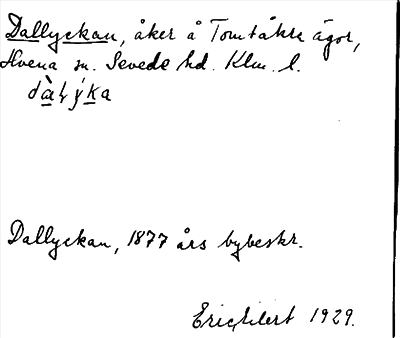 Dallyckan, åker å Tomtåkra ägor,
Hvena sn. Sevede hd. Klm. l.
Dallyckan, 1877 års bybeskr.
1929.